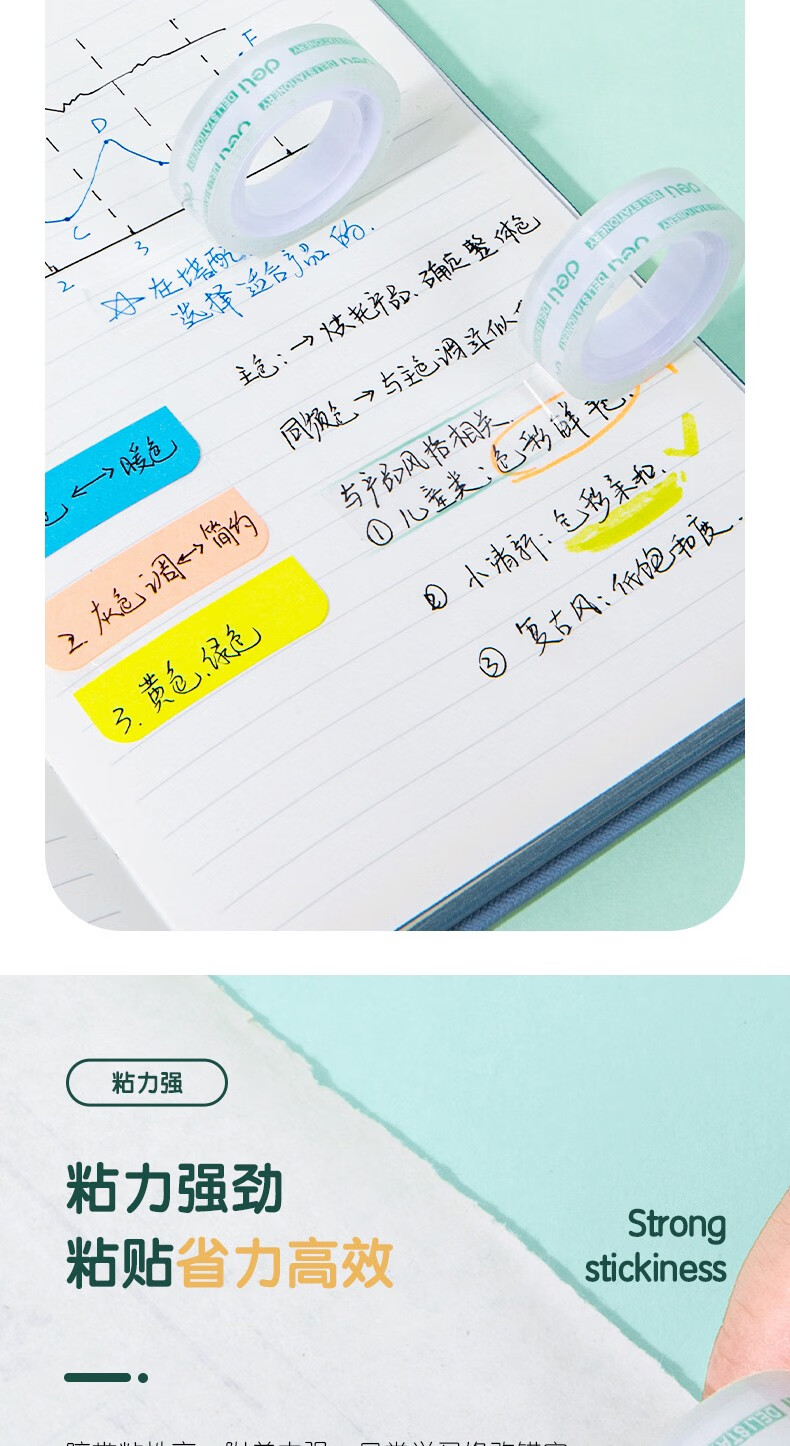 F
D
C
2
3
deli DELI STATIONERY
deli
deli DELI STATIONERY
deli
☆在搭配
选择适合产品的.
主色:→烘托产品.确定整体色
同频色→与主色调类似
与产品风格相关.
①儿童类:色彩鲜艳.
②小清新:色彩柔和.
③复古风:低饱和度.
色↔暖色
2.灰色调↔简约
3.黄色.绿色
粘力强
粘力强劲
粘贴省力高效
Strong
stickiness
DELI STA